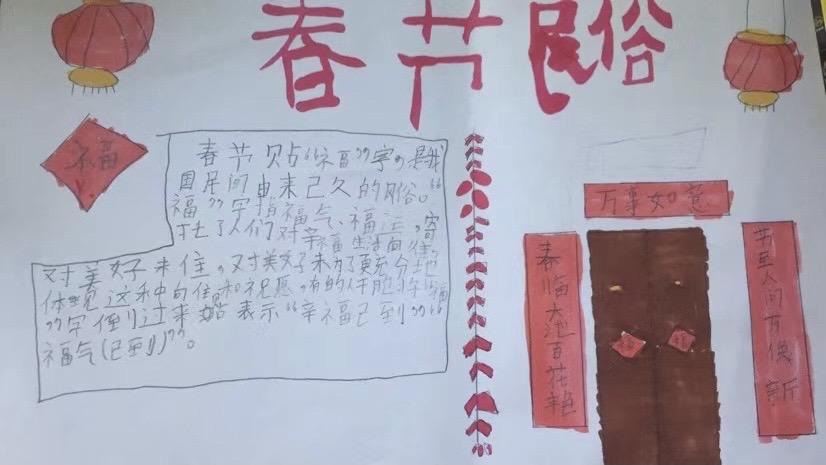 春节民俗
福
春节贴“福”字,是我
国民间由来已久的风俗。“
福”字指福气、福运,寄
托了人们对幸福生活向往,
对美好未住。对美好未为了更充分地
体现这种向住和祝愿,有的仟脆将福
”字倒过来贴表示“幸福已到”“
福气(已到)”。
万事如意
春临大地百花艳
节至人间万俱新
福
福